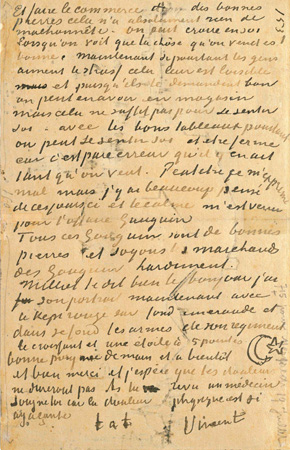 Et faire le commerce des bonnes
pierres cela n'a absolument rien de
malhonnête. on peut croire en soi
lorsqu'on voit que la chose qu'on vend est
bonne, maintenant pourtant les gens
aiment le strass cela leur est loisible
et puisqu'ils le demandent bon
on peut en avoir en magasin
mais cela ne suffit pas pour se sentir
soi – avec les bons tableaux pourtant
on peut se sentir soi et être ferme
car c'est pure erreur qu'il y en ait
tant qu'on veut. Peut être je m'exprime
mal mais j'y ai beaucoup pensé
ces jours ci et le calme m'est venu
pour l'affaire Gauguin
Tous ces Gauguin sont de bonnes
pierres et soyons les marchands
des Gauguin hardiment.
Milliet te dit bien le bonjour j'ai
son portrait maintenant avec
le kepi rouge sur fond emeraude et
dans ce fond les armes de son regiment
le croissant et une étoile à 5 pointes
bonne poignée de main et à bientôt
et bien merci et j'espère que les douleurs
ne dureront pas As tu revu un médecin
soigne toi car la douleur physique est si
agaçante
t. à t. Vincent